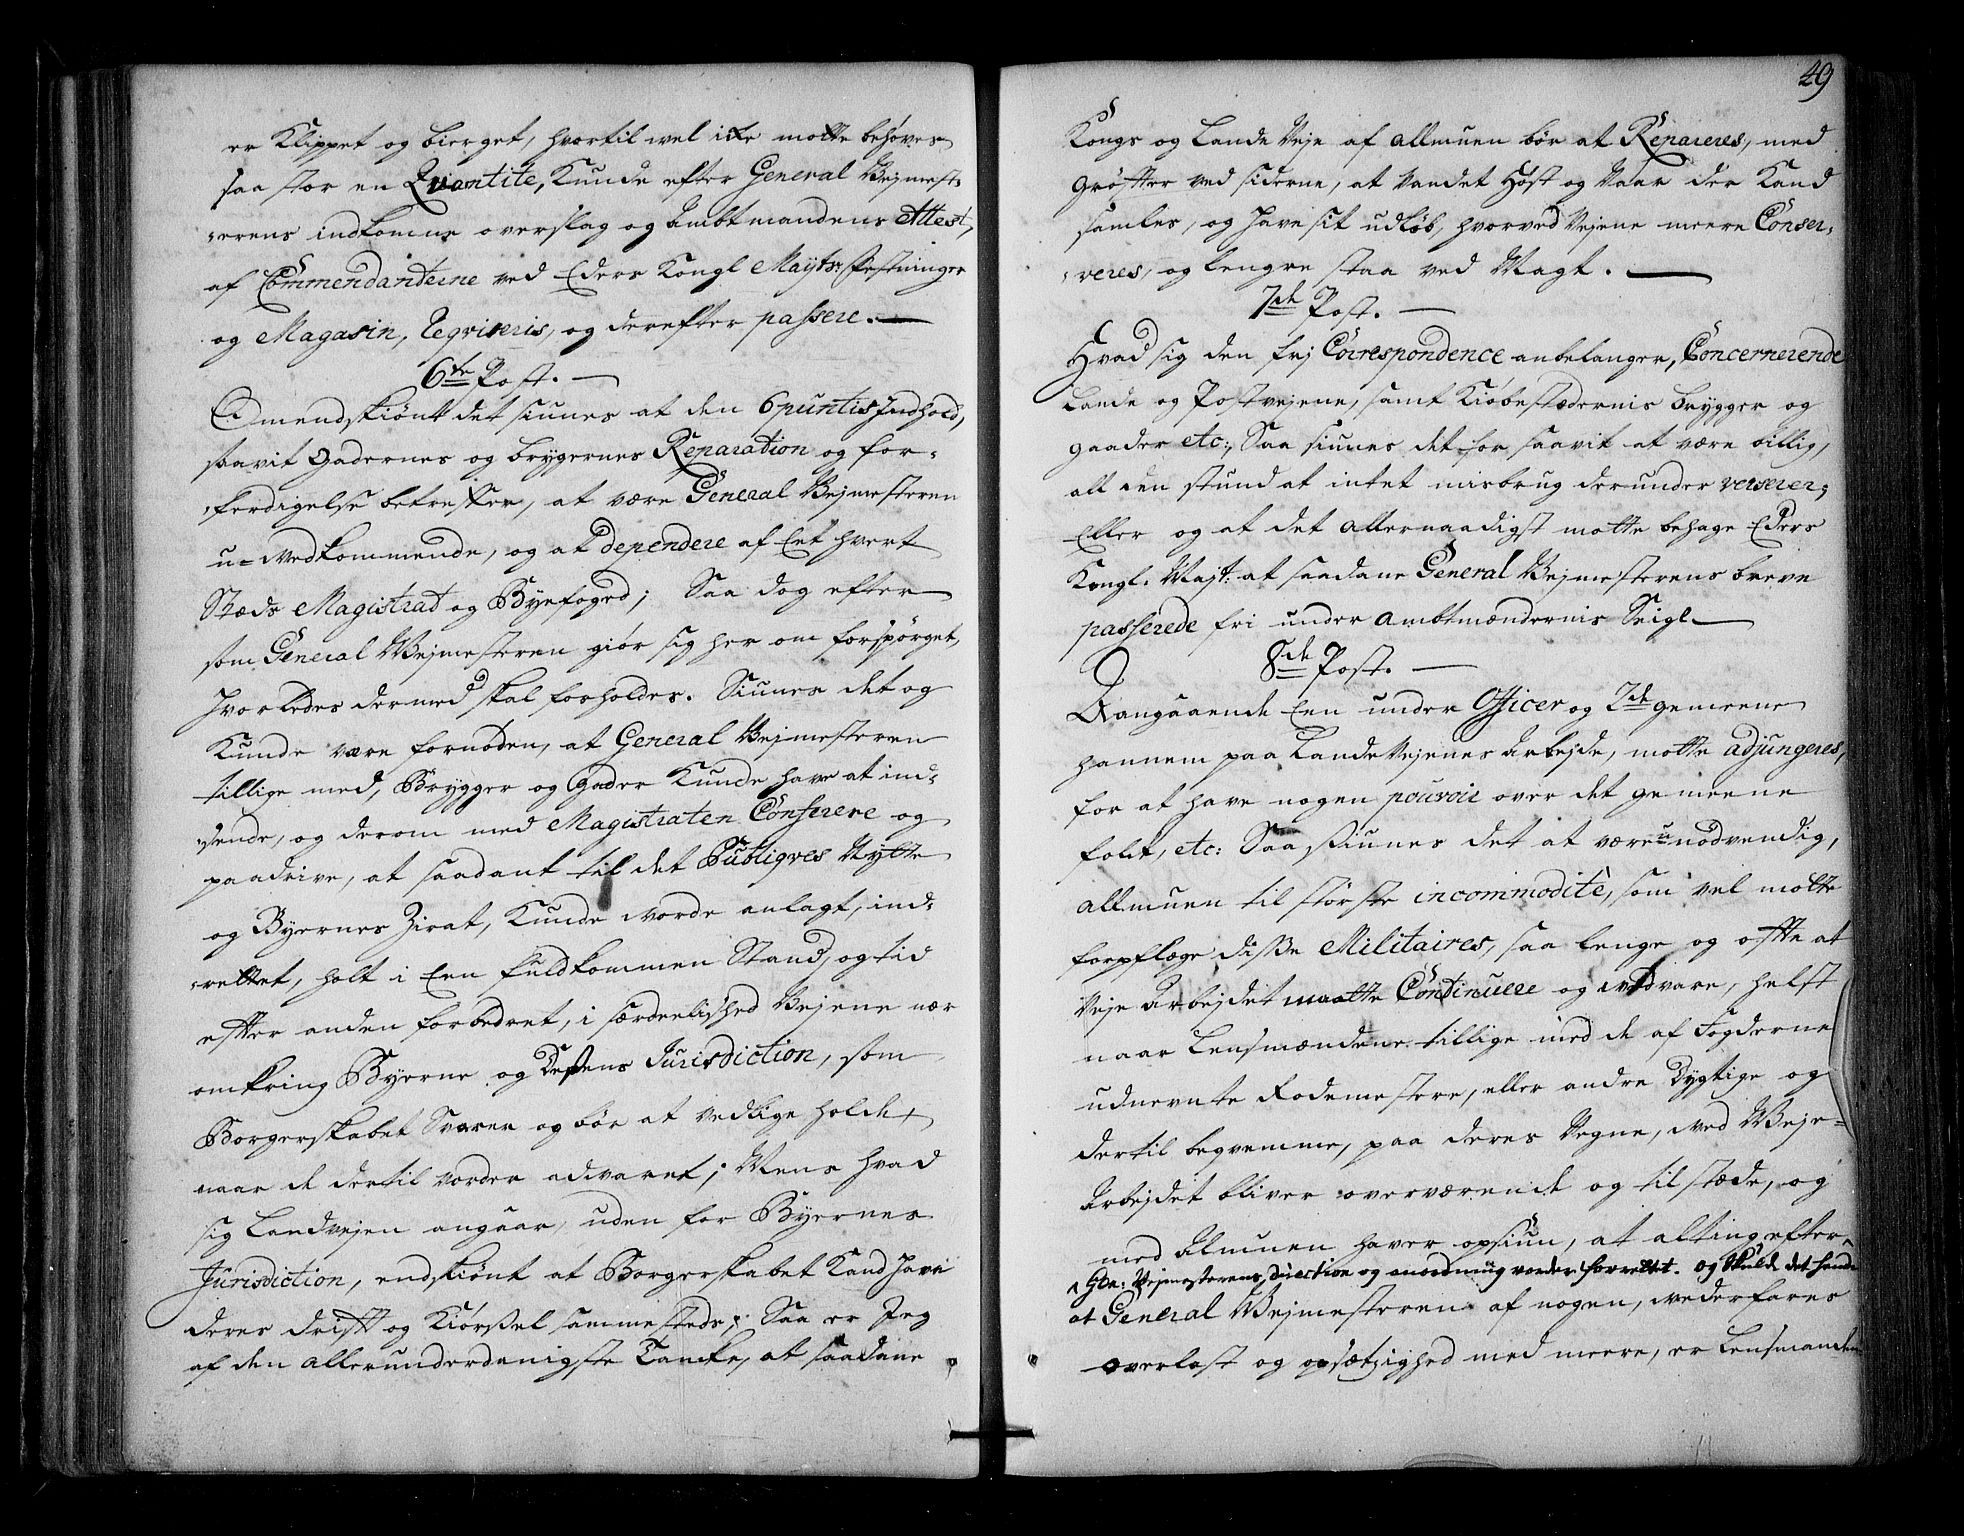 er Klippet og bierget, hvortil vel icke motte behøves
saa stor en Qvantite, Kunde efter General Vejmest-
-erens indkomne overslag og Ambtmandens Attest,
af Commendanterne ved Eders Kongl Mayts: Festninger
og Magasin, Reqvireris, og derefter passere. —
6te Post. —
Omendskiønt det siunes at den 6 puntis Indhold,
saavit Gadernes og brygernes Reparation og for-
-ferdigelse betreffer, at være General Vejmesteren
u-vedkommende, og at dependere af Eet hvert
Stæds Magistrat og Byefoged; Saa dog efter
som General Vejmesteren giør sig her om forspørget,
hvorledes dermed skal forholdes. Siunes det og
Kunde være fornøden, at General Vejmesteren
tillige med, Brygger og Gader Kunde have at ind-
-sende, og derom med Magistraten Conferere og
paadrive, at saadant til det Publiqves Nytte
og Byernes Zirat, Kunde vorde anlagt, ind-
-rettet, holt i Een fuldkommen Stand, og tid
efter anden forbedret, i særdeelished Vejene nær
omkring Byerne og Dessens Jurisdiction, som
Borgerskabet Svarer og bør at vedlige holde,
naar de dertil vorder advaret; Mens hvad
sig Landvejen angaar, uden for Byernes
Jurisdiction, endskiønt at Borgerskabet Kand have
deres drift og Kiørssel sammesteds; Saa er Jeg
af den allerunderdanigste Tancke, at saadane
49
Kongs og Lande Veje af Allmuen bør at Repareres, med
Grøfter ved siderne, at Vandet Høst og Vaar der Kand
samles, og have sit udløb, hvorved Vejene meere Conser-
-veres, og lengre staa ved Magt. —
7de Post. —
Hvad sig den frj Correspondence anbelanger, Concernerende
Lande og Postvejene, samt Kiøbestædernis brygger og
gaader etc:, Saa siunes det for saavit at være billig,
all den stund at intet misbrug derunder verserer;
Eller og at det Allernaadigst motte behage Eders
Kongl. Mayt: at saadane General Vejmesterens breve
passerede fri under Ambtmændernis Seigl —
8de Post. —
Aangaaende Een under Officer og 2de gemeene
hannem paa Landevejenes Arbejde, motte adjungeres,
for at have nogen pouvoir over det gemeene
folk, etc: Saa siunes det at være unødvendig,
Allmuen til største incommodite, som vel motte
forpflæge disse Militaires, saa lenge og ofte at
Veje Arbejdet maatte Continuere og vedvare, helst
naar Lensmændene tillige med de af Fogderne
udnevnte Rodemestere, eller andre Dygtige og
dertil beqvemme, paa deres Vegne, ved Veje-
Arbejdet bliver overværende og tilstæde, og
med Almuen haver opsiun, at alting efter
Gen: Vejmesterens direction og anordning vorder forrettet. og skulde det hende
at General Vejmesteren af nogen, wederfares
overlast og opsætzighed med meere, er Lensmanden